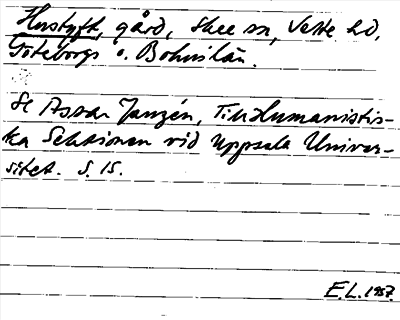 Hustyft, gård, Skee sn, Vette hd,
Göteborgs o. Bohuslän.
Se Assar Janzén, Till Humanistis-
ka Sektionen vid Uppsala Univer-
sitet. S. 15.
E.L. 1957.